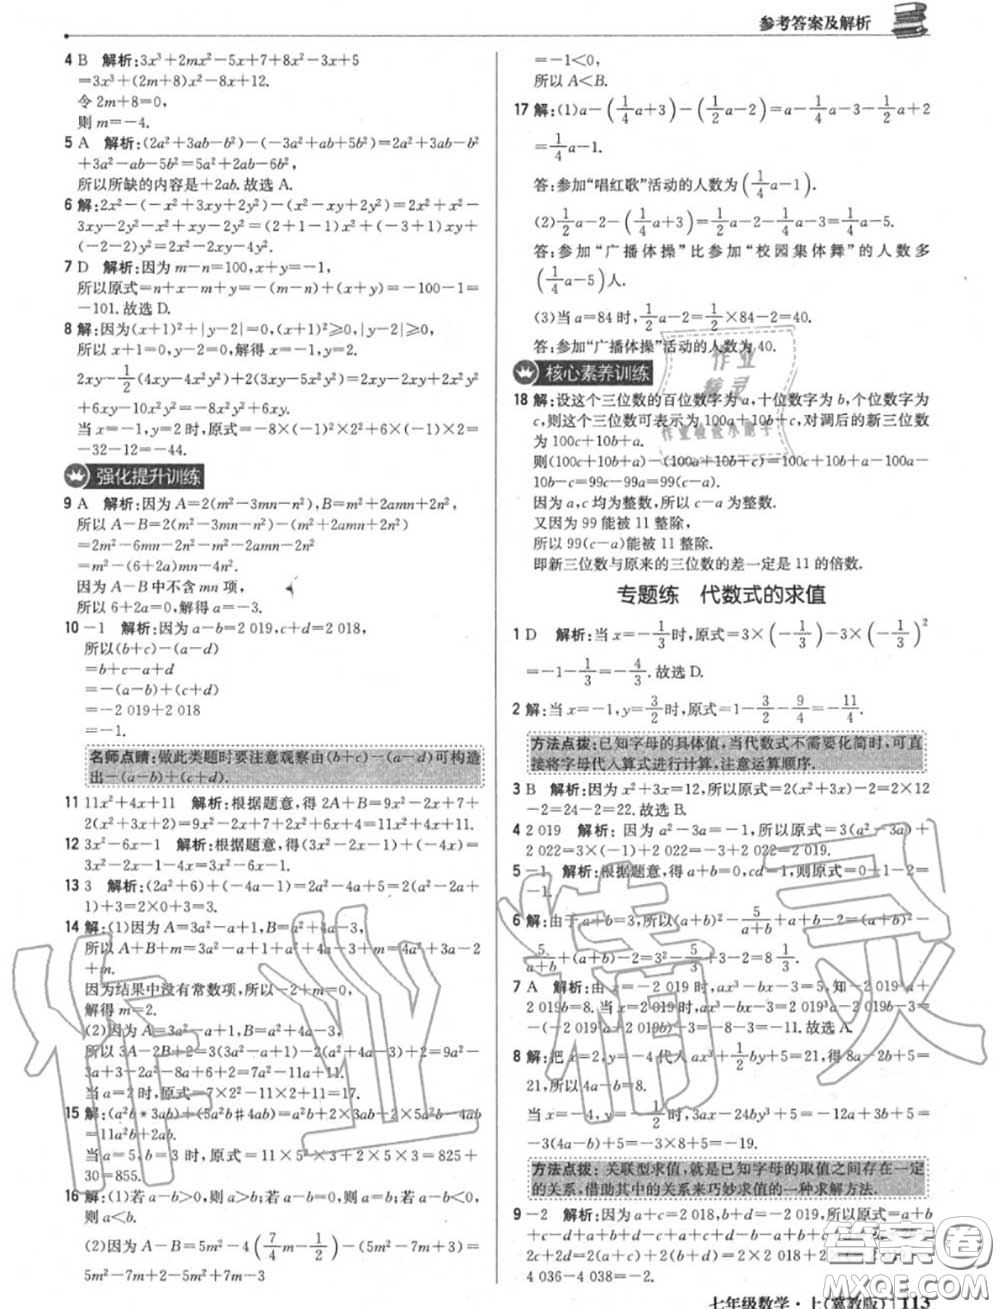 参考答案及解析
4 B 解析:3x³+2mx²-5x+7+8x²-3x+5
=3x³+(2m+8)x²-8x+12.
令 2m+8=0,
则 m=-4.
5 A 解析:(2a²+3ab-b²)-(-3a²+ab+5b²)=2a²+3ab-b²
+3a²-ab-5b²=5a²+2ab-6b²,
所以所缺的内容是+2ab.故选 A.
6 解:2x²-(-x²+3xy+2y²)-(x²-xy+2y²)=2x²+x²-
3xy-2y²-x²+xy-2y²=(2+1-1)x²+(-3+1)xy+
(-2-2)y²=2x²-2xy-4y².
7 D 解析:因为 m-n=100,x+y=-1,
所以原式=n+x-m+y=-(m-n)+(x+y)=-100-1=
-101.故选 D.
8 解:因为(x+1)²+|y-2|=0,(x+1)²≥0,|y-2|≥0,
所以 x+1=0,y-2=0,解得 x=-1,y=2.
2xy-1/2(4xy-8x²y²)+2(3xy-5x²y²)=2xy-2xy+4x²y²
+6xy-10x²y²=-6x²y²+6xy.
当 x=-1,y=2 时,原式=-6×(-1)²×2²+6×(-1)×2=
-24-12=-36.
强化提升训练
9 A 解析:因为 A=2(m²-3mn-n²),B=m²+2amn+2n²,
所以 A-B=2(m²-3mn-n²)-(m²+2amn+2n²)
=2m²-6mn-2n²-m²-2amn-2n²
=m²-(6+2a)mn-4n².
因为 A-B 中不含 mn 项,
所以 6+2a=0,解得 a=-3.
10 -1 解析:因为 a-b=2 019,c+d=2 018,
所以(b+c)-(a-d)
=b+c-a+d
=-(a-b)+(c+d)
=-2 019+2 018
=-1.
名师点睛:做此类题时要注意观察由(b+c)-(a-d)可构造
出-(a-b)+(c+d).
11 11x²+4x+11 解析:根据题意,得 2A+B=9x²-2x+7+
2(x²+3x+2)=9x²-2x+7+2x²+6x+4=11x²+4x+11.
12 3x²-6x-1 解析:根据题意,得(3x²-2x-1)+(-4x)=
3x²-2x-1-4x=3x²-6x-1.
13 3 解析:(2a²+6)+(-4a-3)=2a²-4a+3=2(a²-2a+
1)+3=2×0+3=3.
14 解:(1)因为 A=3a²-a+1,B=a²+4a-3,
所以 A+B+m=3a²-a+1+a²+4a-3+m=4a²+3a-2
+m.
因为结果中没有常数项,所以-2+m=0,
解得 m=2.
(2)因为 A=3a²-a+1,B=a²+4a-3,
所以 3A-2B=3(3a²-a+1)-2(a²+4a-3)=9a²-
3a+3-2a²-8a+6=7a²-11a+9.
当 a=2 时,原式=7×2²-11×2+9=15.
15 解:(a²b*3ab)+(5a²b♯4ab)=
=11a²b+2ab.
当 a=5,b=3 时,原式=11×5²×3+2×5×3=825+
30=855.
16 解:(1)若 a-b>0,则 a>b;若 a-b=0,则 a=b;若 a-b<0,
则 a<b.
(2)因为 A-B=5m²-4(7/4m-1/2)-(5m²-7m+3)=
5m²-7m+2-5m²+7m-3
=-1<0,
所以 A<B.
17 解:(1)a-(1/4a+3)-(1/2a-2)=a-1/4a-3-1/2a+2
=1/4a-1.
答:参加“唱红歌”活动的人数为(1/4a-1).
(2)1/2a-2-(1/4a+3)=1/2a-2-1/4a-3=1/4a-5.
答:参加“广播体操”比参加“校园集体舞”的人数多
(1/4a-5).
(3)当 a=84 时,1/2a-2=1/2×84-2=40.
答:参加“广播体操”活动的人数为 40.
核心素养训练
18 解:设这个三位数的百位数字为 a,十位数字为 b,个位数字为
c,则这个三位数可表示为 100a+10b+c,对调后的新三位数
为 100c+10b+a.
则(100c+10b+a)-(100a+10b+c)=100c+10b+a-100a-
10b-c=99c-99a=99(c-a).
因为 a,c 均为整数,所以 c-a 为整数.
又因为 99 能被 11 整除,
所以 99(c-a)能被 11 整除.
即新三位数与原来的三位数的差一定是 11 的倍数.
专题练 代数式的求值
1 D 解析:当 x=-1/3 时,原式=3×(-1/3)-3×(-1/3)²
=-1-1/3=-4/3.故选 D.
2 解:当 x=-1,y=3/2 时,原式=1-3/2-9/4=-11/4.
方法点拨:已知字母的具体值,当代数式不需要化简时,可直
接将字母代入算式进行计算,注意运算顺序.
3 B 解析:因为 x²+3x=12,所以原式=2(x²+3x)-2=2×12
-2=24-2=22.故选 B.
4 2 019 解析:因为 a²-3a=-1,所以原式=3(a²-3a)+
2 022=3×(-1)+2 022=2 019.
5 -1 解析:根据题意,得 a+b=0,cd=1,则原式=0+1-2=
-1.
6 解:由于 a+b=3,所以(a+b)²-5/(a+b)+a+b-2=(a+b)²
-5/(a+b)+(a+b)-2=3²-5/3+3-2=
7 A 解析:由 x=-2 019 时,ax³-bx-3=5,知-2 019³a+
2 019b=8.当 x=2 019 时,ax³-bx-3=2 019³a-2 019b-3=
-(-2 019³a+2 019b)-3=-8-3=-11.故选 A.
8 解:把 x=2,y=-4 代入 ax³+1/2by+5=21,得 8a-2b+5=
21,所以 4a-b=8.
当 x=-4,y=-1/2 时,3ax-24by³+5=-12a+3b+5=
-3(4a-b)+5=-3×8+5=-19.
方法点拨:关联型求值,就是已知字母的取值之间存在一定
的关系,借助其中的关系来巧妙求值的一种求解方法.
9 -2 解析:因为 a+c=2 018,b+d=-2 019,所以原式=a+b
+c-d+a+d+b+c+a-b+c+d=
2c+2d=2(a+c)+2(b+d)=2×2 018+2×(-2 019)=
4 036-4 038=-2.
七年级数学·上(冀教版) 113
作业精灵
答案卷